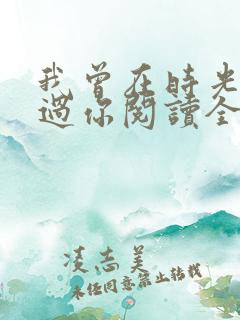 我曾在時光
過你閱讀全
凌志美
未经同意禁止转载